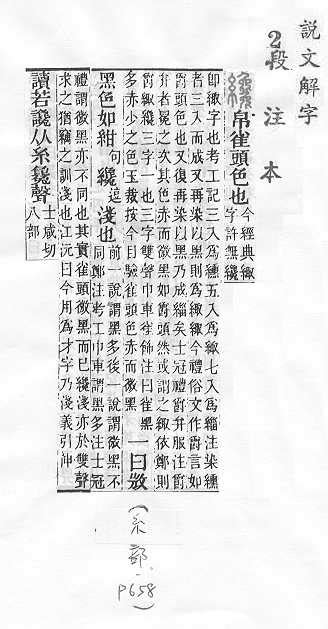 説文解字
2段注本
帛雀頭色也 今經典緅
字許無纔
卽緅字也考工記三入爲纁五入爲緅七入爲緇注染纁
者三入而成又再染以黑則爲緅緅今禮俗文作爵言如
爵頭色也又復再染以黑乃成緇矣士冠禮爵弁服注爵
弁者冕之次其色赤而微黑如爵頭然或謂之緅依鄭則
爵緅纔三字一也三字雙聲巾車雀飾注曰雀黑
多赤少之色玉裁按今目驗雀頭色赤而微黑
一曰㣲
黑色如紺 句 纔 逗 淺也 前一說謂黑多後一說謂微黑不
同鄭注考工巾車謂黑多注士冠
禮謂微黑亦不同也其實雀頭微黑而已纔淺亦於雙聲
求之猶竊之訓淺也江沅曰今用爲才字乃淺義引伸
讀若讒从糸毚聲 士咸切
八部
(糸部.P658)